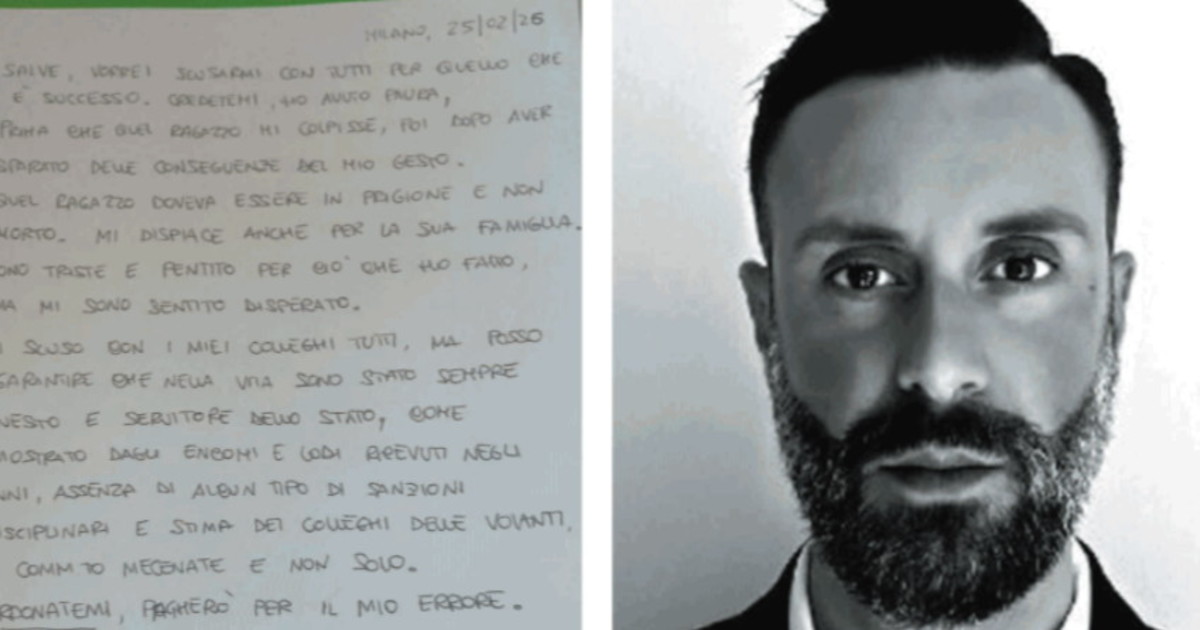 MILANO, 25/02/26
SALVE, VORREI SCUSARMI CON TUTTI PER QUELLO CHE
È SUCCESSO. CREDETEMI, HO AVUTO PAURA,
PRIMA CHE QUEL RAGAZZO MI COLPISSE, POI DOPO AVER
SPARATO DELLE CONSEGUENZE DEL MIO GESTO.
QUEL RAGAZZO DOVEVA ESSERE IN PRIGIONE E NON
MORTO. MI DISPIACE ANCHE PER LA SUA FAMIGLIA.
ONO TRISTE E PENTITO PER CIO' CHE HO FATTO,
MA MI SONO SENTITO DISPERATO.
I SCUSO CON I MIEI COLLEGHI TUTTI, MA POSSO
GARANTIRE CHE NELLA VITA SONO STATO SEMPRE
NESTO E SERVITORE DELLO STATO, COME
MOSTRATO DAGLI ENCOMI E LODI RICEVUTI NEGLI
NNI, ASSENZA DI ALCUN TIPO DI SANZIONI
ISCIPLINARI E STIMA DEI COLLEGHI DELLE VOLANTI,
COMM.TO MECENATE E NON SOLO.
RDONATEMI, PAGHERÒ PER IL MIO ERRORE.